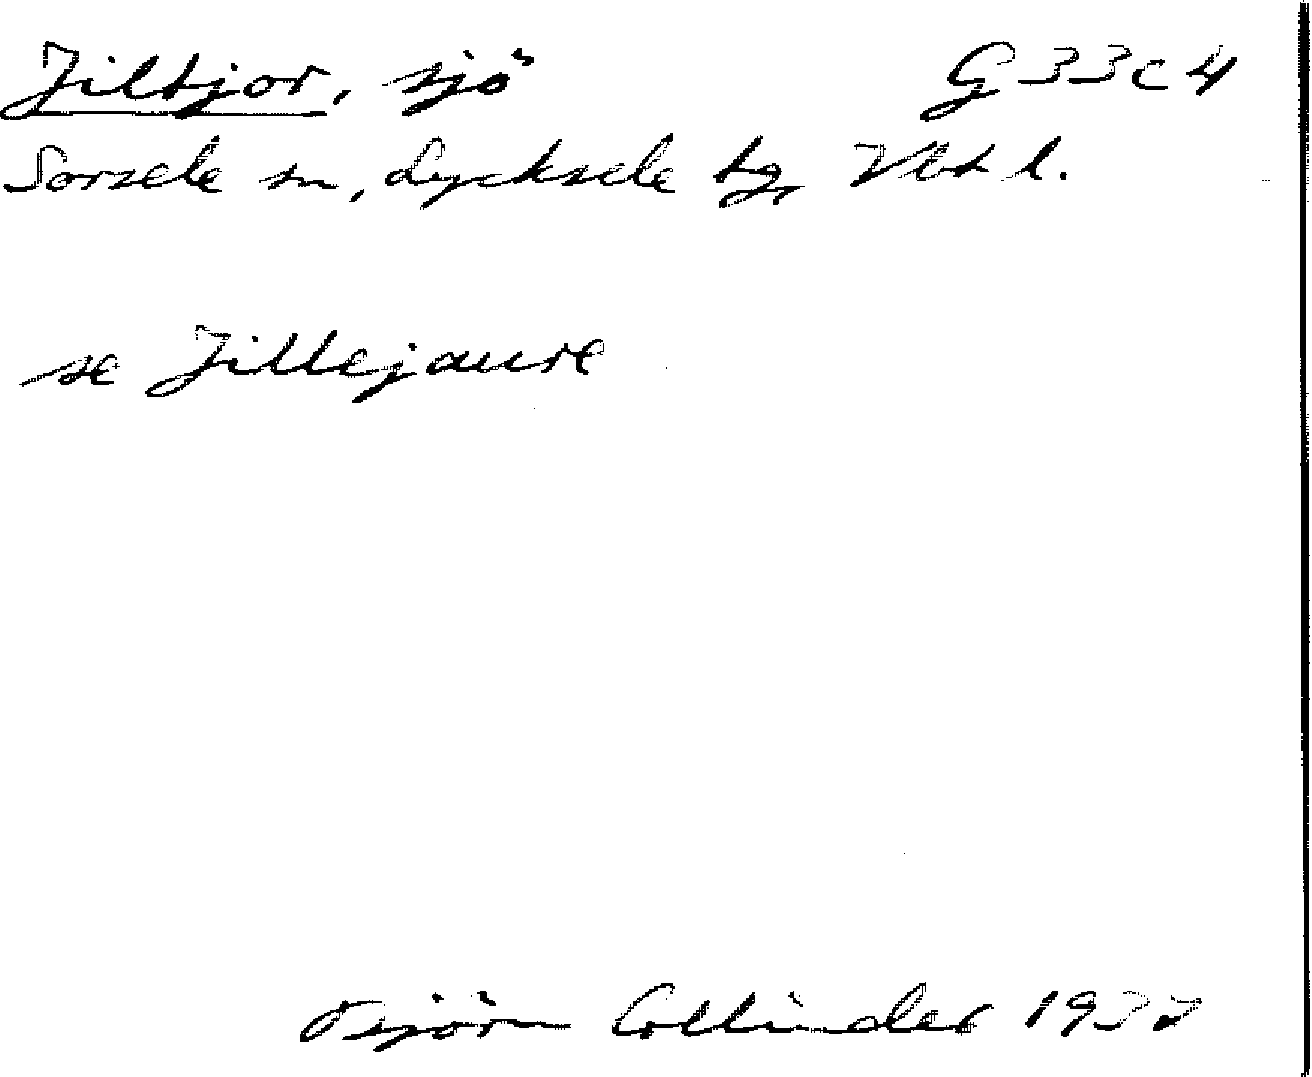 Jiltjor, sjö G 33 c 4
Sorsele sn, Lycksele tg, Vbt l.
se Jillejaure
Björn Collinder